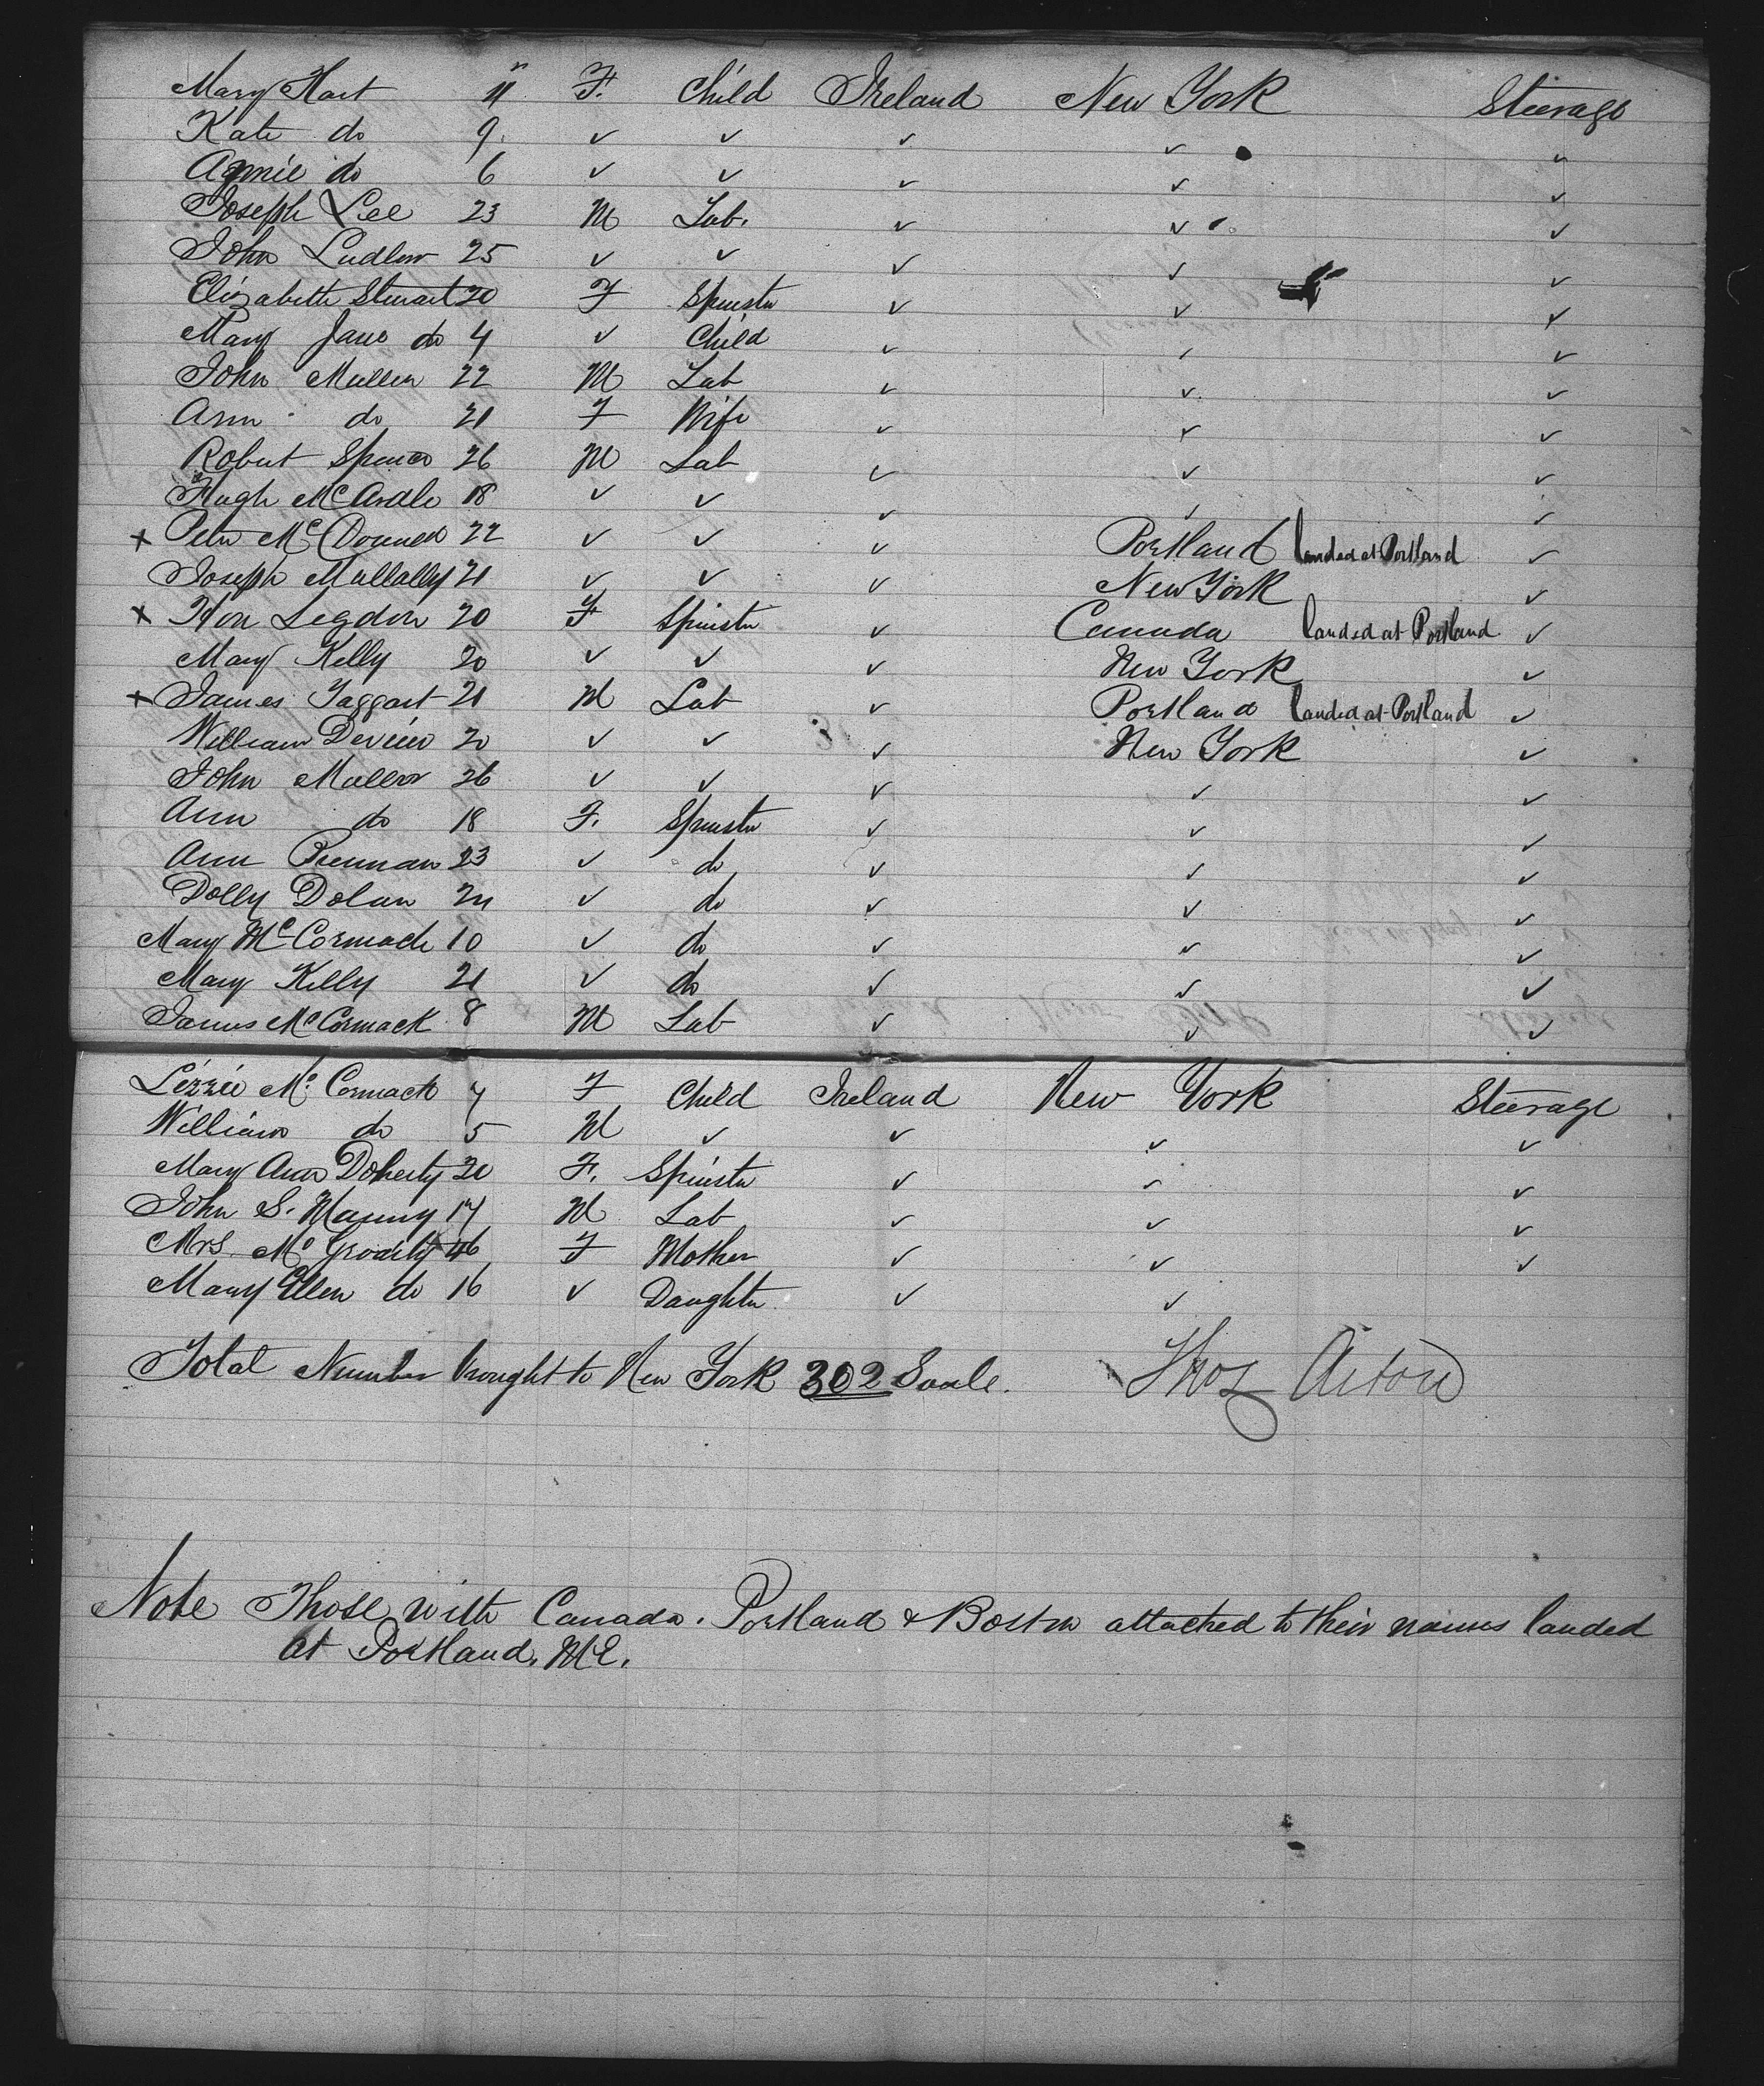 Mary Hart 11 F. Child Ireland New York Steerage
Kate do 9 ✓ ✓ ✓ ✓ ✓
Annie do 6 ✓ ✓ ✓ ✓ ✓
Joseph Lee 23 M Lab. ✓ ✓ ✓
John Ludlow 25 ✓ ✓ ✓ ✓ ✓
Elizabeth Stewart 20 F Spinster ✓ ✓ ✓
Mary Jane do 4 ✓ Child ✓ ✓ ✓
John Mullen 22 M Lab ✓ ✓ ✓
Ann do 21 F Wife ✓ ✓ ✓
Robert Spence 26 M Lab ✓ ✓ ✓
Hugh McArdle 18 ✓ ✓ ✓ ✓ ✓
x Peter McDonnell 22 ✓ ✓ ✓ Portland landed at Portland ✓
Joseph Mullally 21 ✓ ✓ ✓ New York ✓
x Legdon 20 F Spinster ✓ Canada landed at Portland ✓
Mary Kelly 20 ✓ ✓ ✓ New York ✓
x James Taggart 21 M Lab ✓ Portland landed at Portland ✓
William Devine 20 ✓ ✓ ✓ New York ✓
John Mullen 26 ✓ ✓ ✓ ✓ ✓
Ann do 18 F. Spinster ✓ ✓ ✓
Ann 23 ✓ do ✓ ✓ ✓
Dolly Dolan 24 ✓ do ✓ ✓ ✓
Mary McCormack 10 ✓ do ✓ ✓ ✓
Mary Kelly 21 ✓ do ✓ ✓ ✓
James McCormack 8 M Lab ✓ ✓ ✓
Lizzie McCormack 7 F Child Ireland New York Steerage
William do 5 M ✓ ✓ ✓ ✓
Mary Ann Doherty 20 F. Spinster ✓ ✓ ✓
John S. Manny 17 M Lab ✓ ✓ ✓
Mrs. 46 F Mother ✓ ✓ ✓
Mary Ellen do 16 ✓ Daughter ✓ ✓
Total Number brought to New York 302 Souls. Thos Aiton
Note Those with Canada. Portland & Boston attached to their names landed
at Portland. ME.